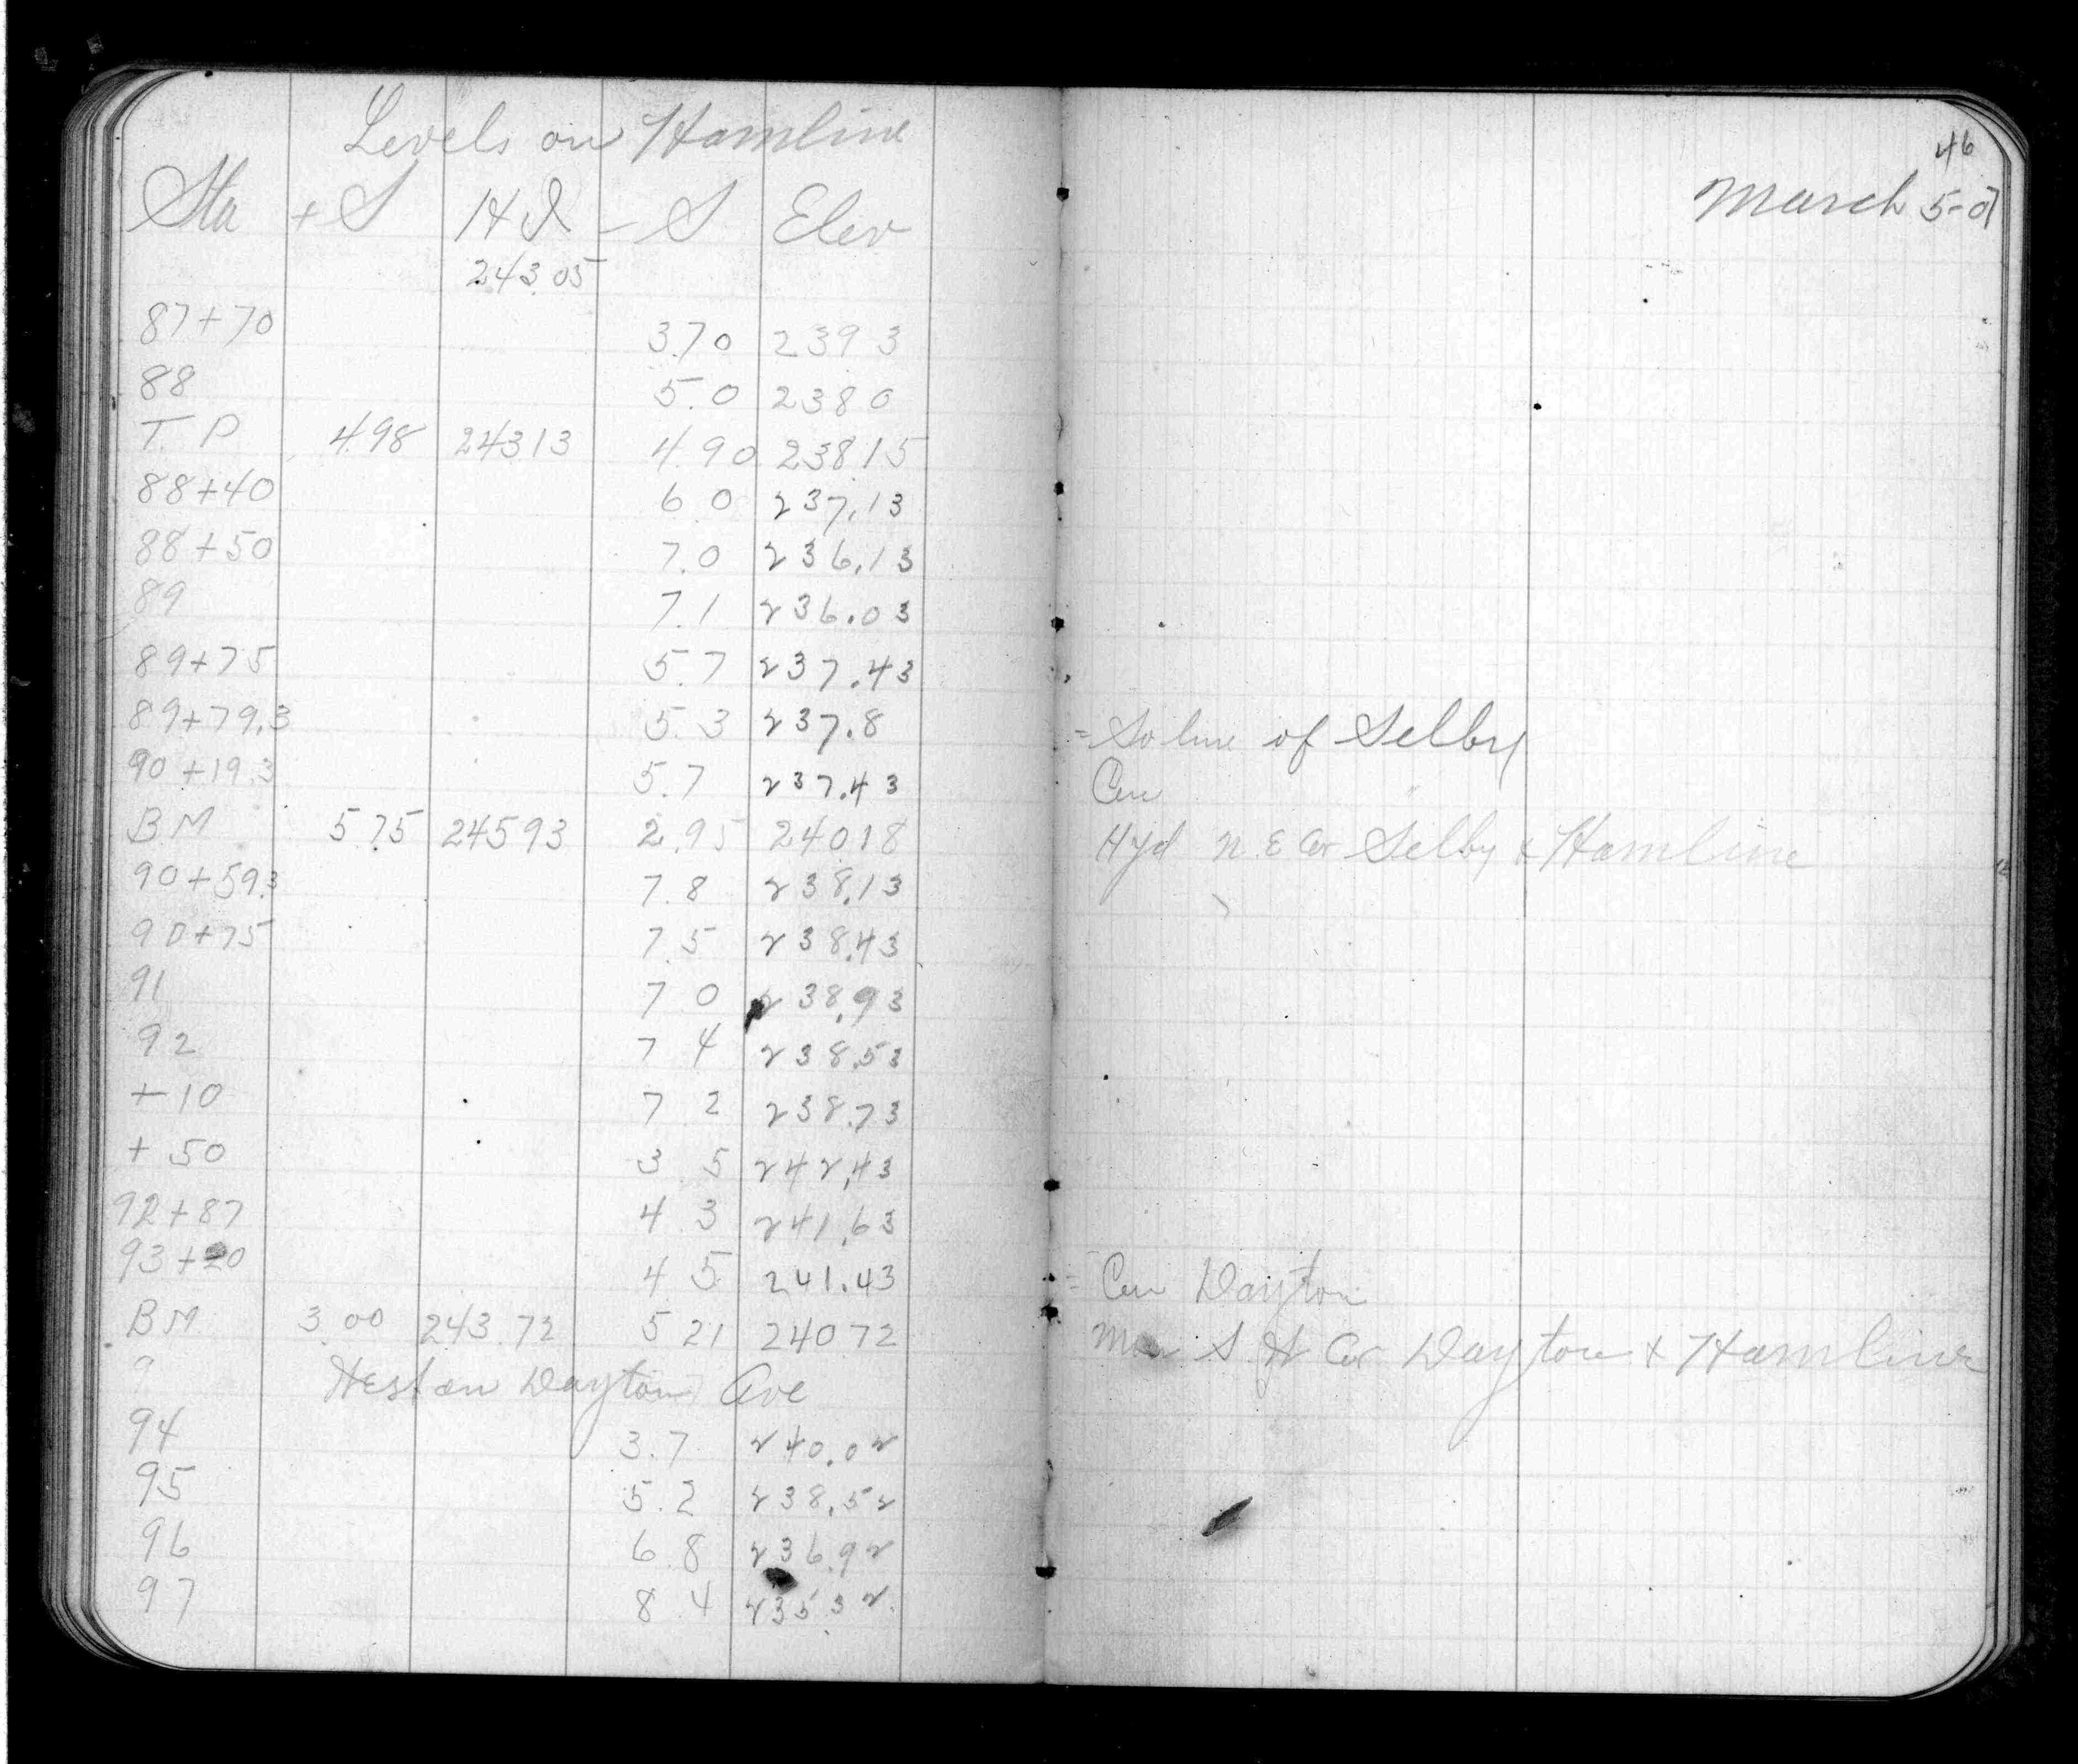 Levels on Hamline
Sta + S H I - S Elev
243.05
87+70 3.70 2393
88 5.0 2380
T. P 4.98 24313 4.90 23815
88+40 6 0 237.13
88+50 7.0 236.13
89 7.1 236.03
89+75 5.7 237.43
89+79.3 5.3 237.8
90+19.3 5.7 237.43
B.M 5.75 24593 2.95 24018
90+59.3 7.8 238.13
90+75 7.5 238.43
91 7 0 238.93
92 7 4 238.53
+10 7 2 238.73
+ 50 3 5 242.43
92+87 4 3 241.63
93+20 4 5 241.43
BM 3.00 243.72 5 21 24072
9 West on Dayton Ave
94 3.7 240.02
95 5.2 238.52
96 6.8 236.92
97 8.4 235 32
46
March 5-07
= So line of Selby
Cen
Hyd N. E Cor Selby & Hamline
= Cen Dayton
Mon S W Cor Dayton & Hamline